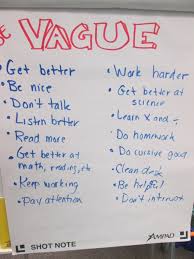 VAGUE
Get better
Be nice
Don't talk
Listen better
Read more
Get better at
math, reading, etc
Keep working
Pay attention
Work harder
Get better at
science
Learn x and ÷
Do homework
Do cursive good
Clean desk
Be helpful
Don't interrupt
SHOT NOTE
AMPAD